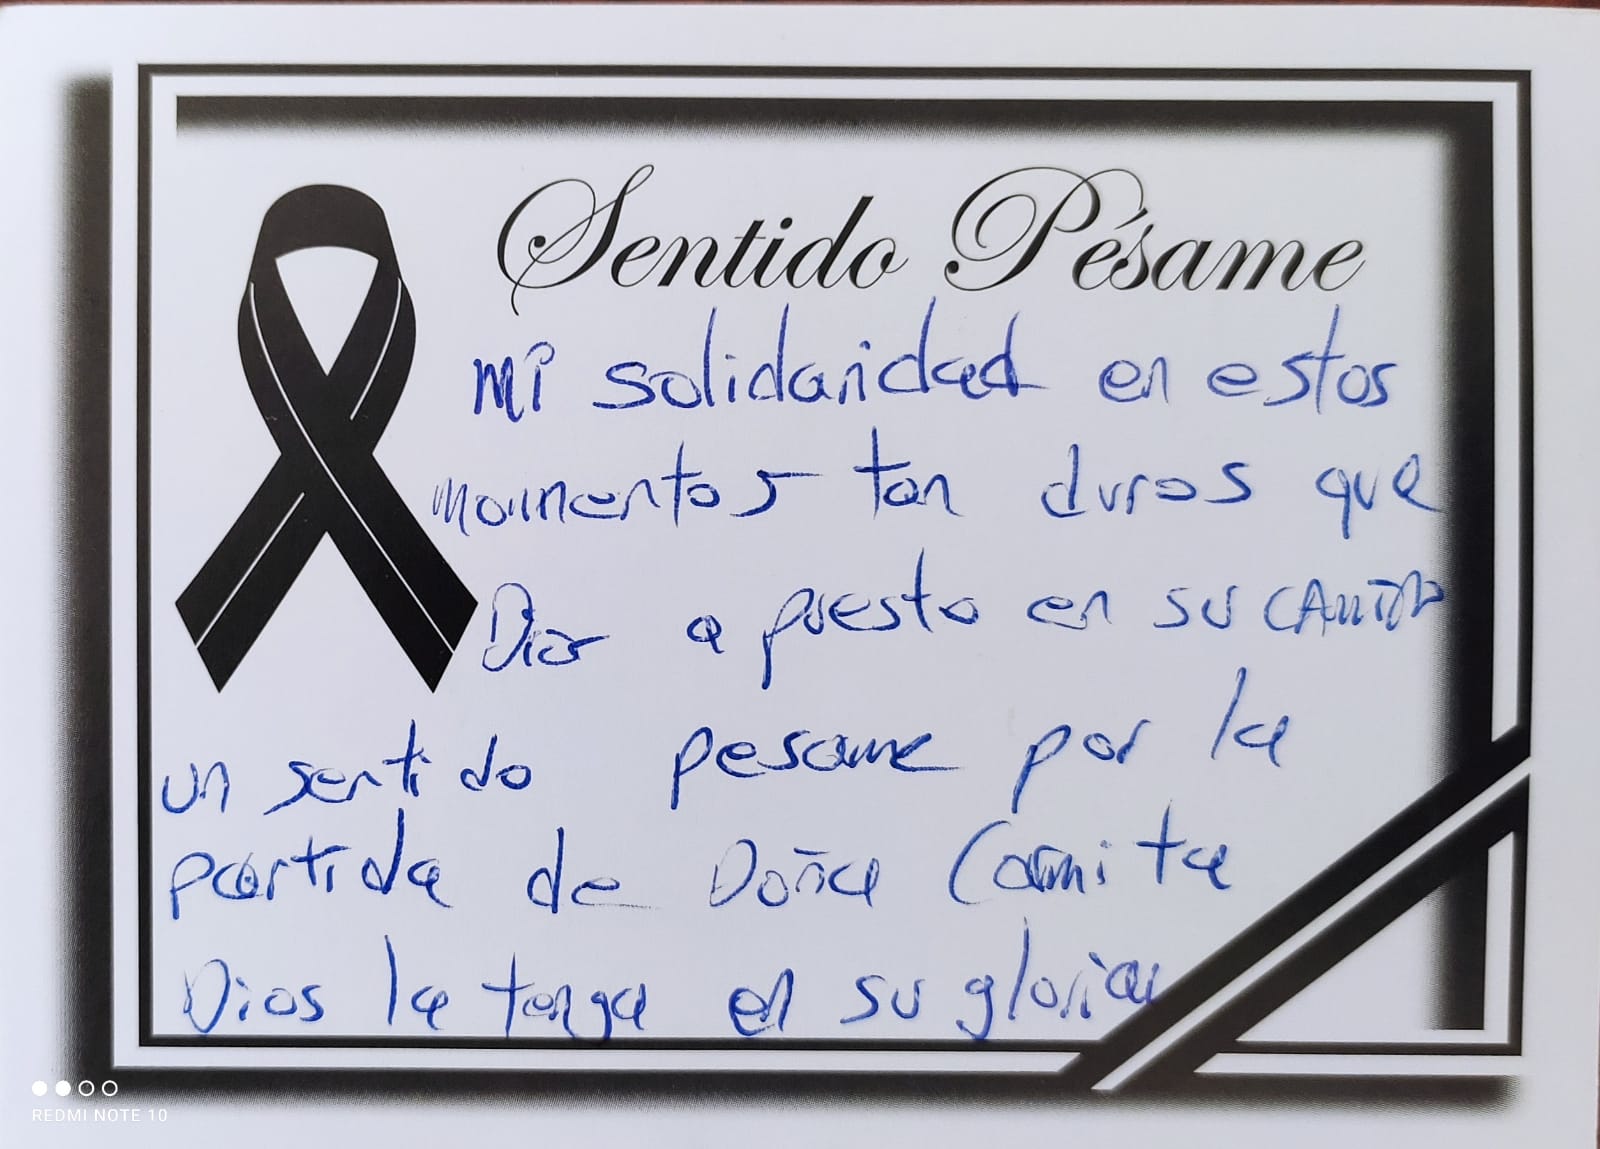 Sentido Pésame
Mi solidaridad en estos
momentos tan duros que
Dios a puesto en su CAMINO
un sentido pesame por la
partida de Doña Carmita
Dios la tenga en su gloria
REDMI NOTE 10